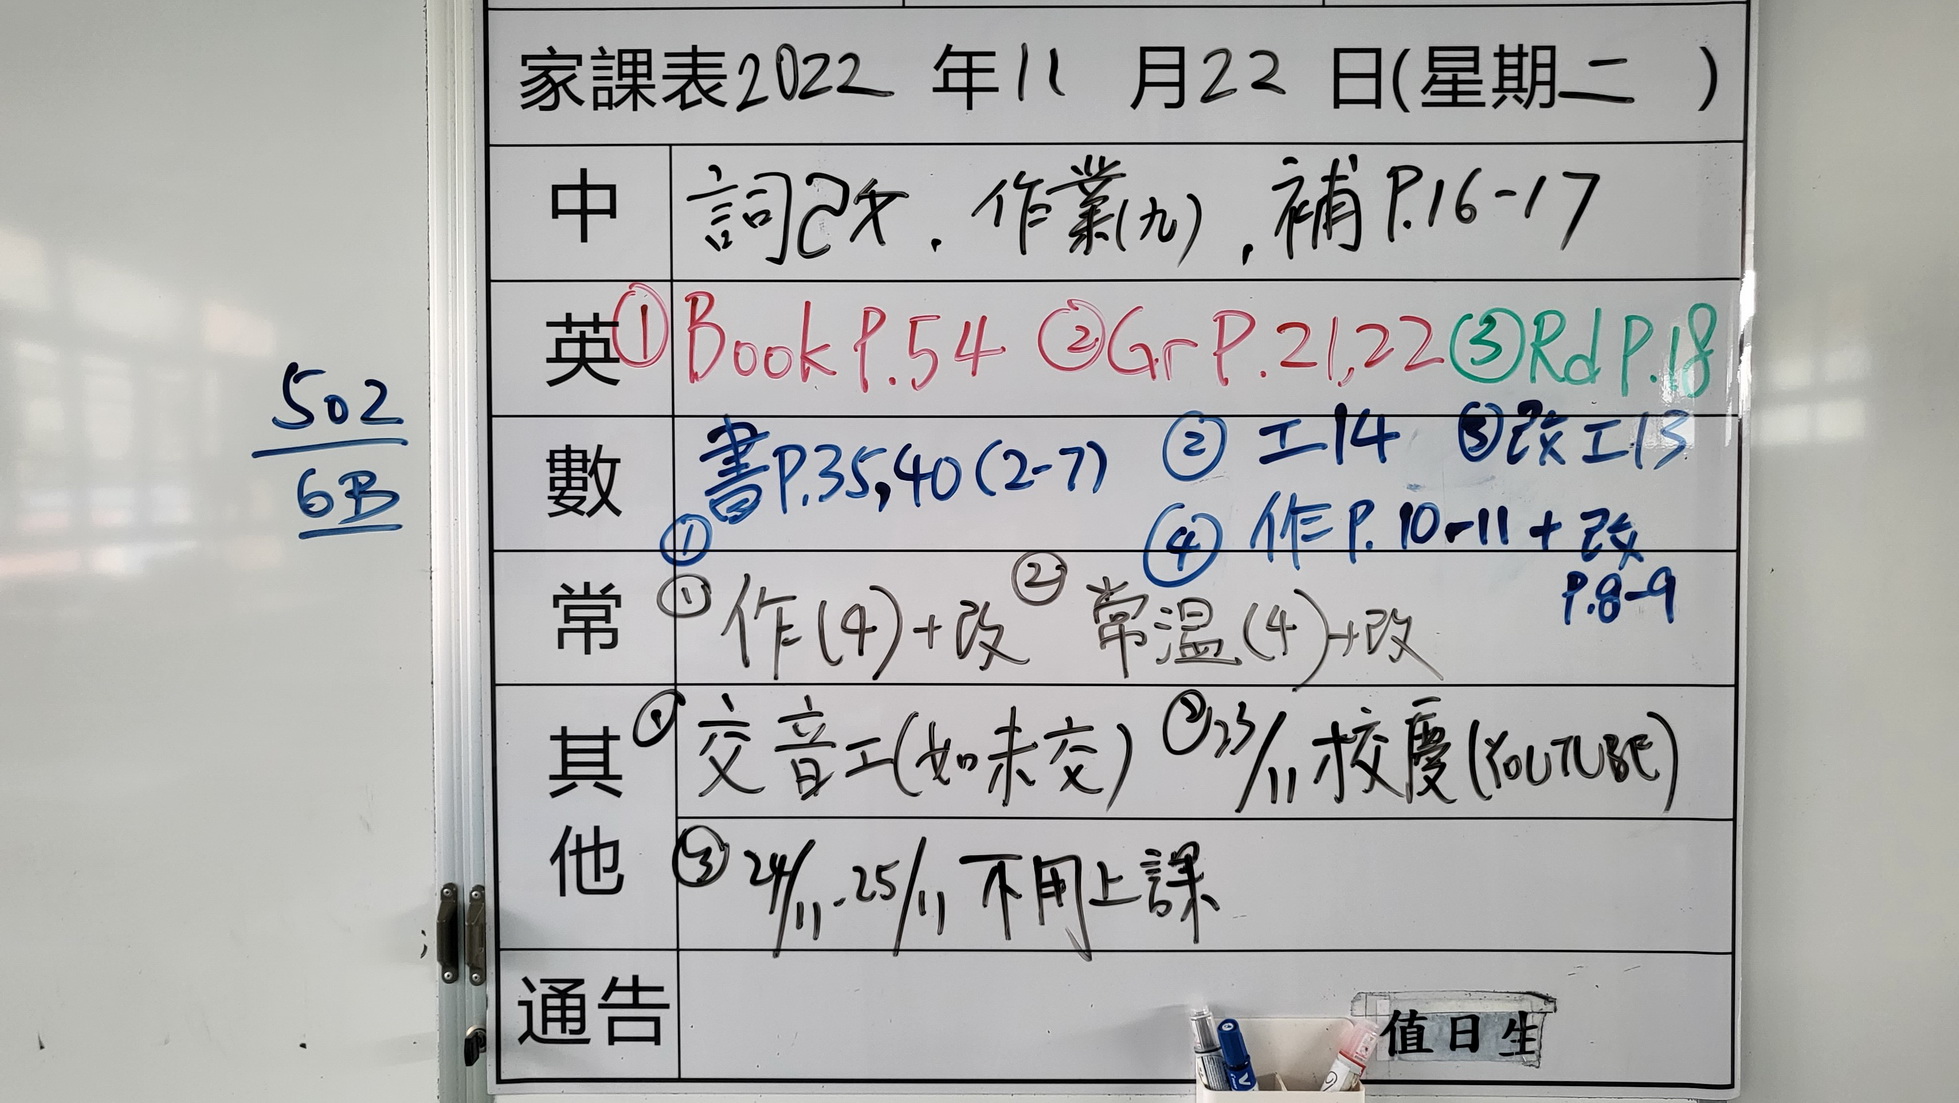 家課表2022 年11 月22 日(星期二 )
中 詞改, 作業(九), 補P.16-17
英 ①Book P.54 ②Gr P.21,22 ③Rd P.18
數 ①書P.35,40(2-7) ②工14 ③改工13
④作P.10-11+改
P.8-9
常 ①作(4)+改 ②常温(4)+改
其他 ①交音工(如未交) ②23/11校慶(YOUTUBE)
③24/11-25/11不用上課
通告
值日生
502
6B